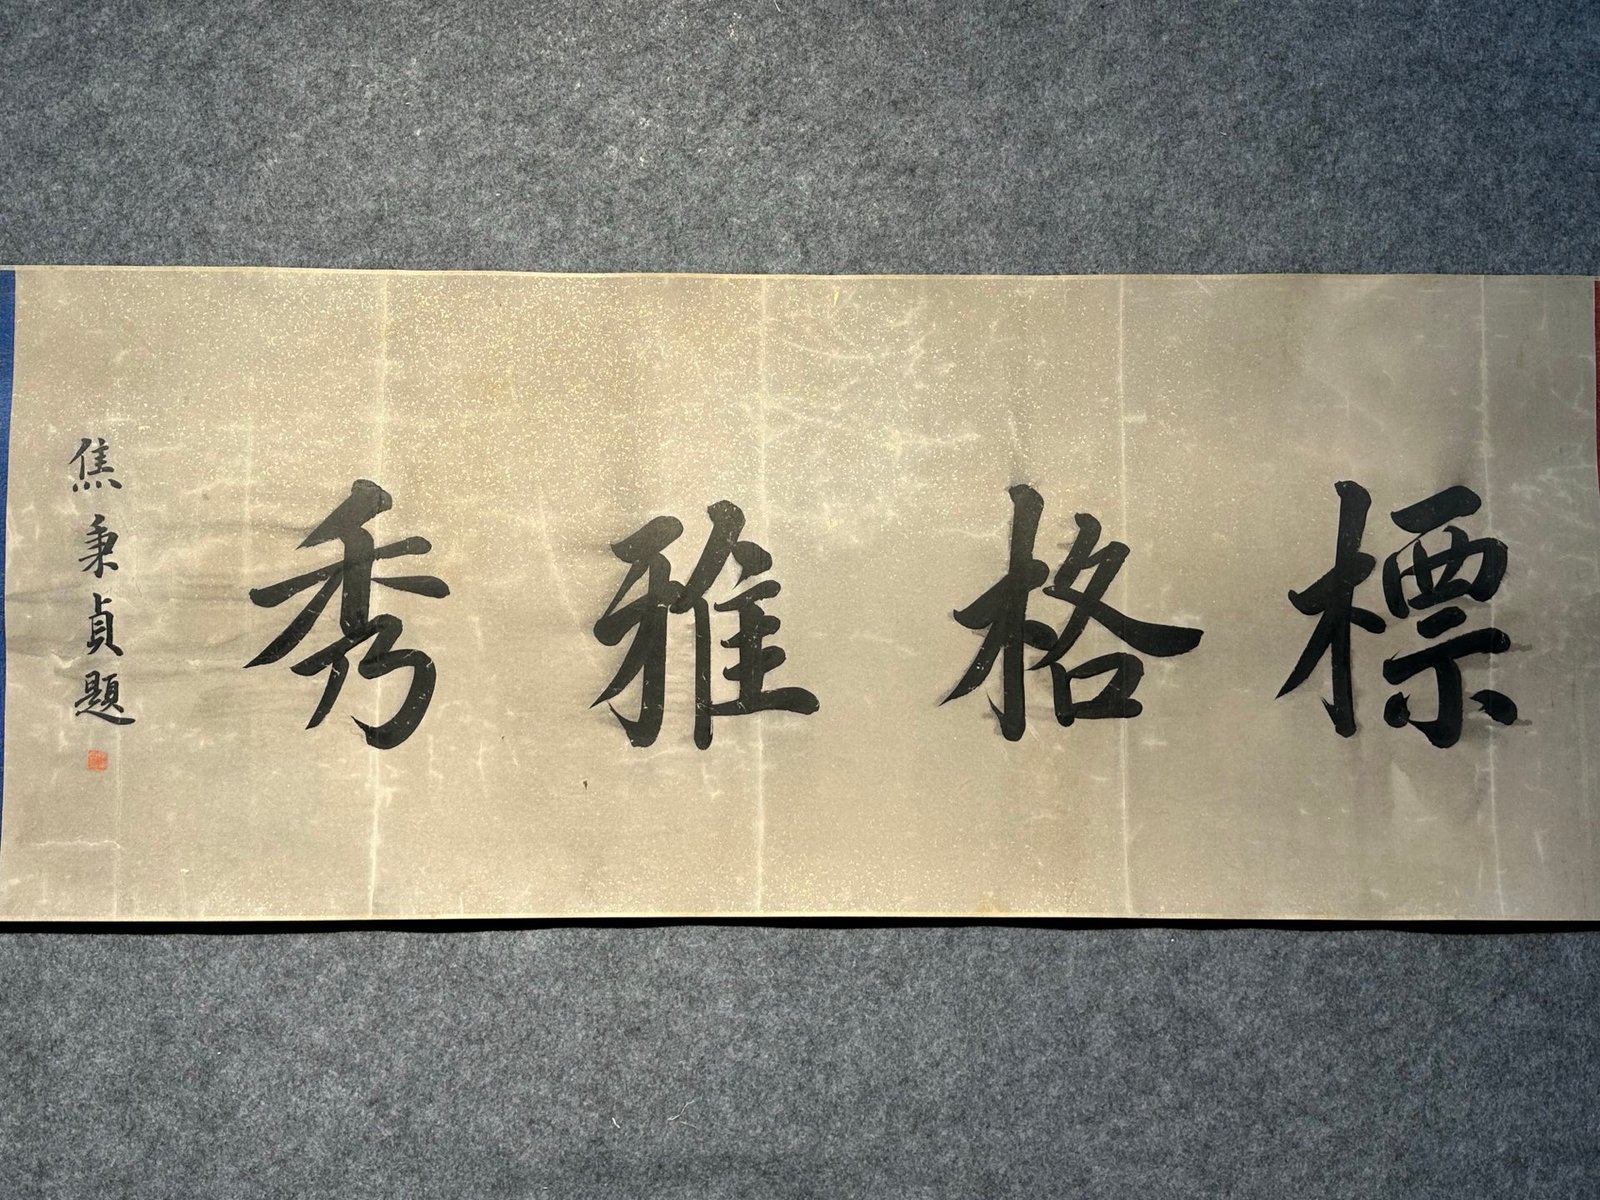 標格雅秀
焦秉貞題